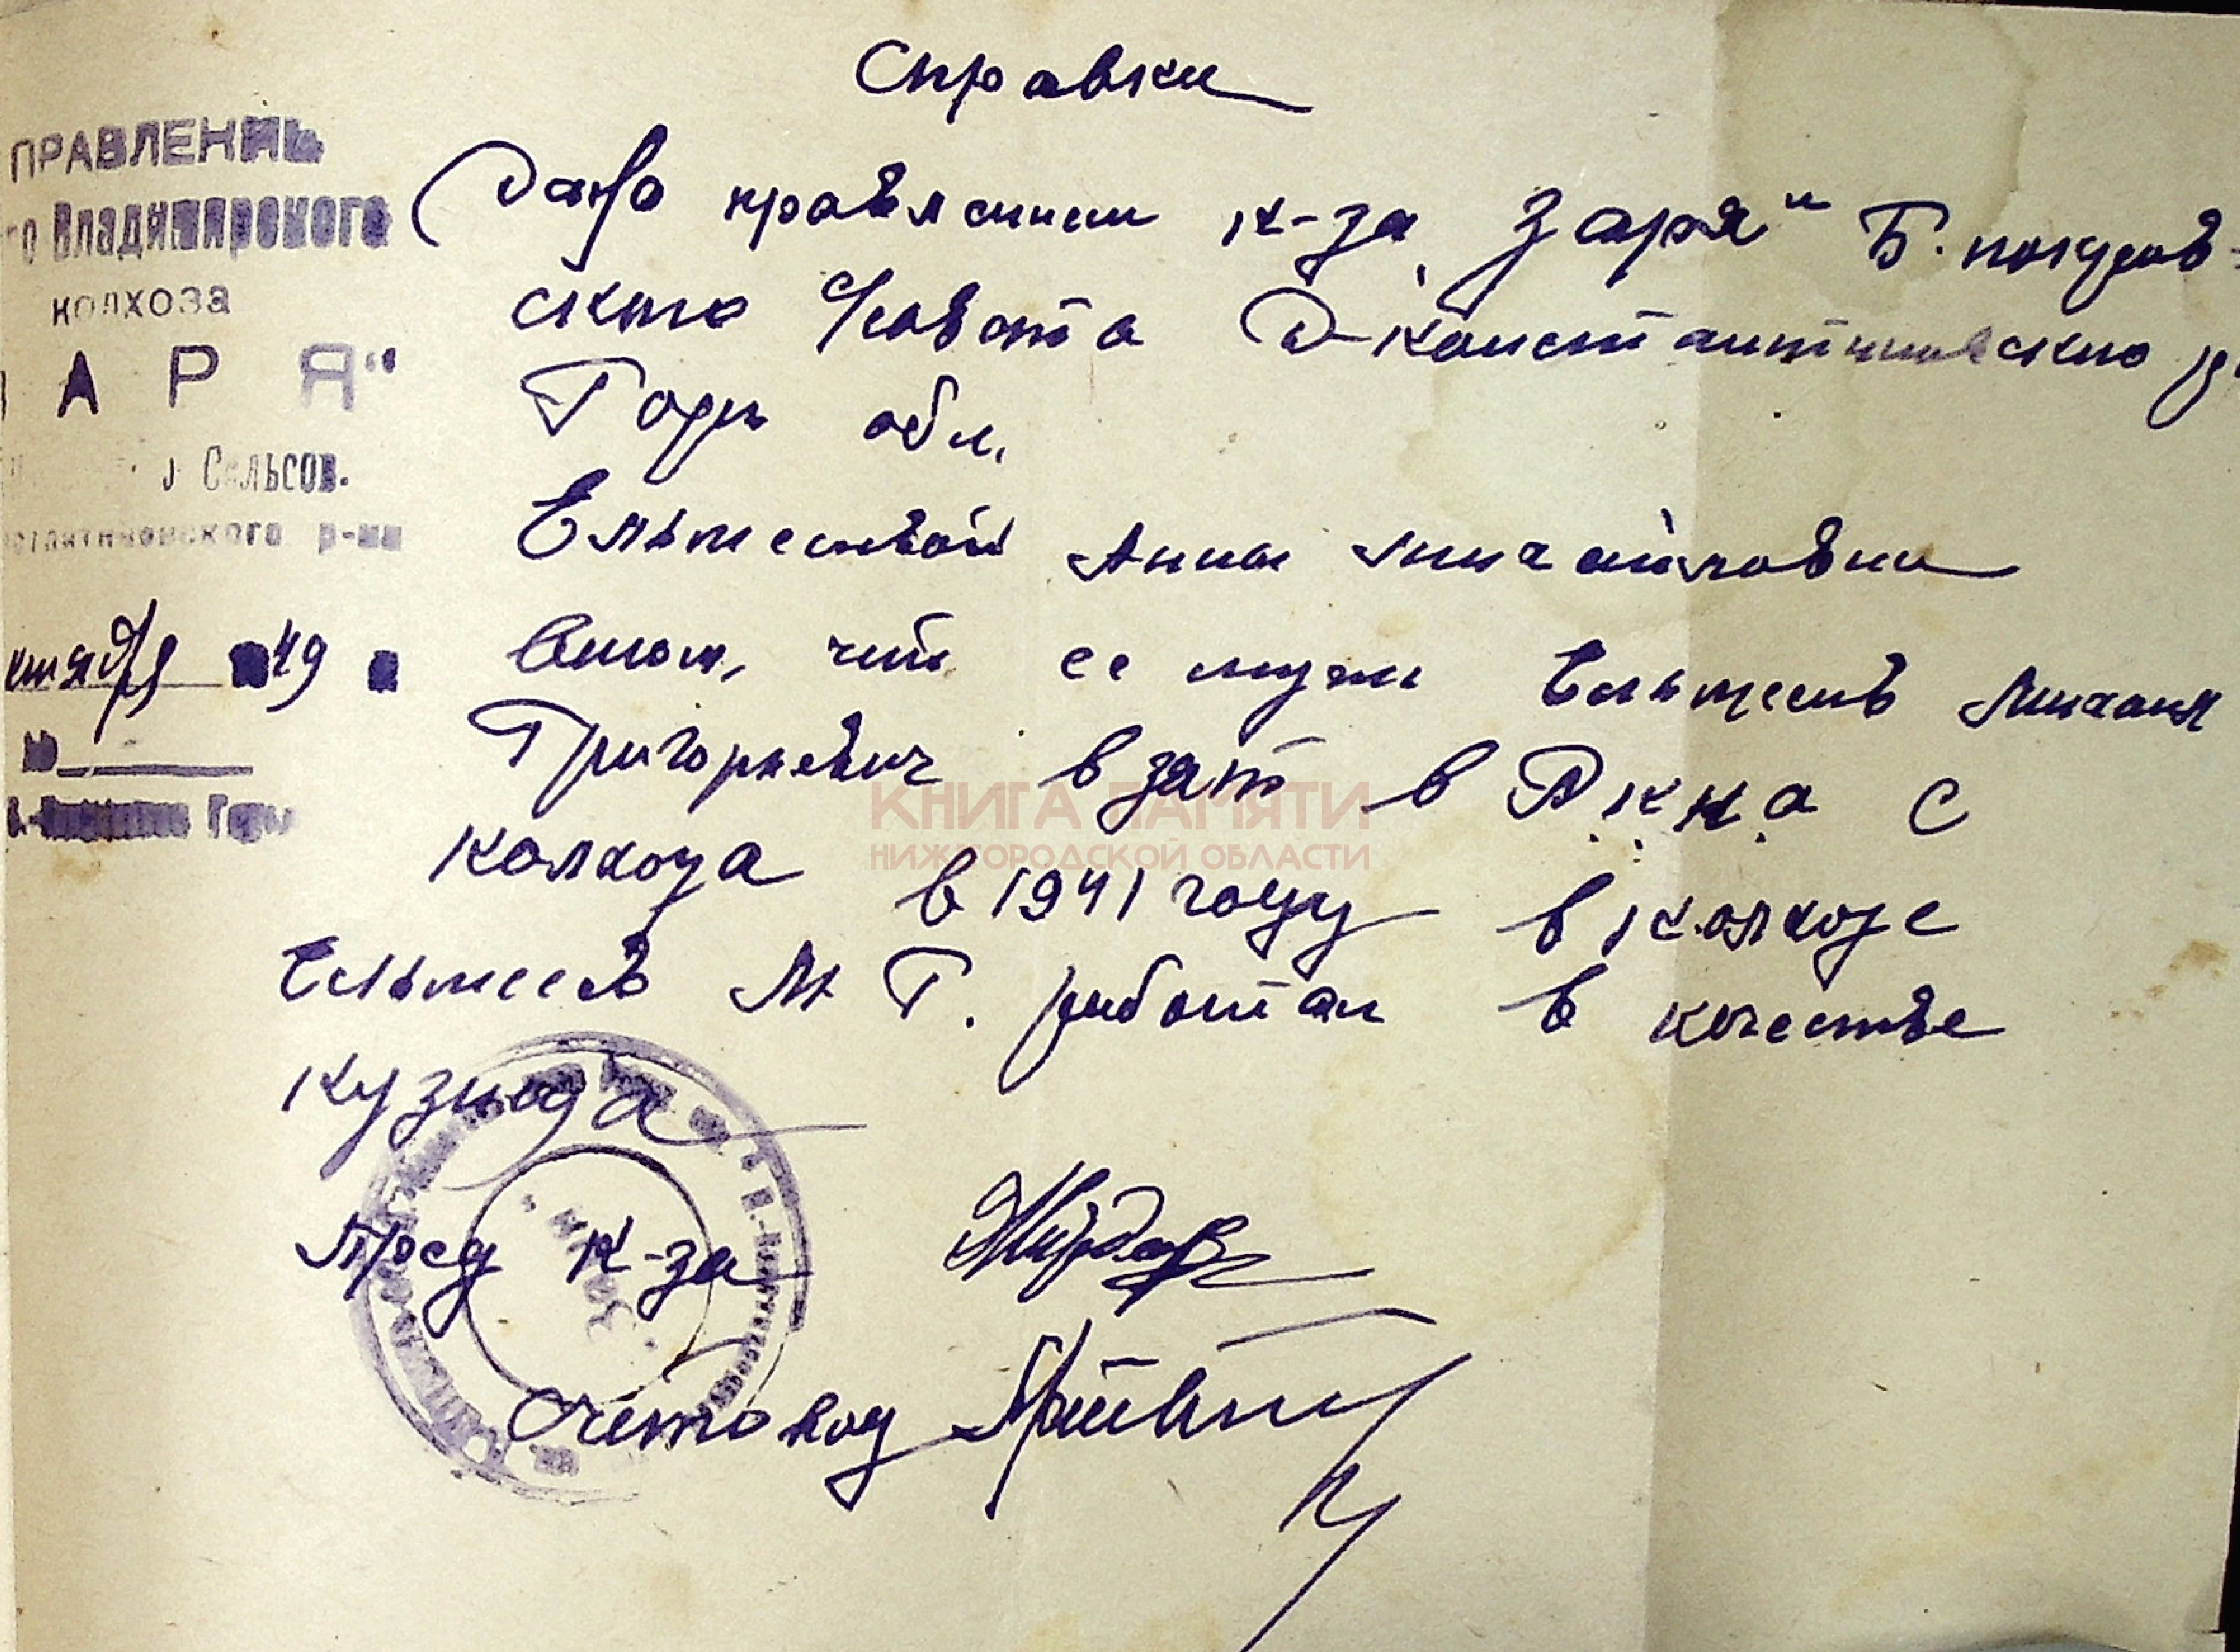 Справка
ПРАВЛЕНИЕ
Владимирского
КОЛХОЗА
АРЯ"
Сельсов.
р-на
49
Дана правлением к-за „Заря" Б. покров-
ского с/совета Д-Константиновско р.
Горь обл.
Ельтесевой Анны Михайловны
втом, что ее муж Ельтесев Михаил
Григорьевич взят в РККА с
колхоза в 1941 году в колхозе
Ельтесев М Г. работал в качестве
кузнеца
Пред к-за
Счетовод
КНИГА ПАМЯТИ
НИЖЕГОРОДСКОЙ ОБЛАСТИ